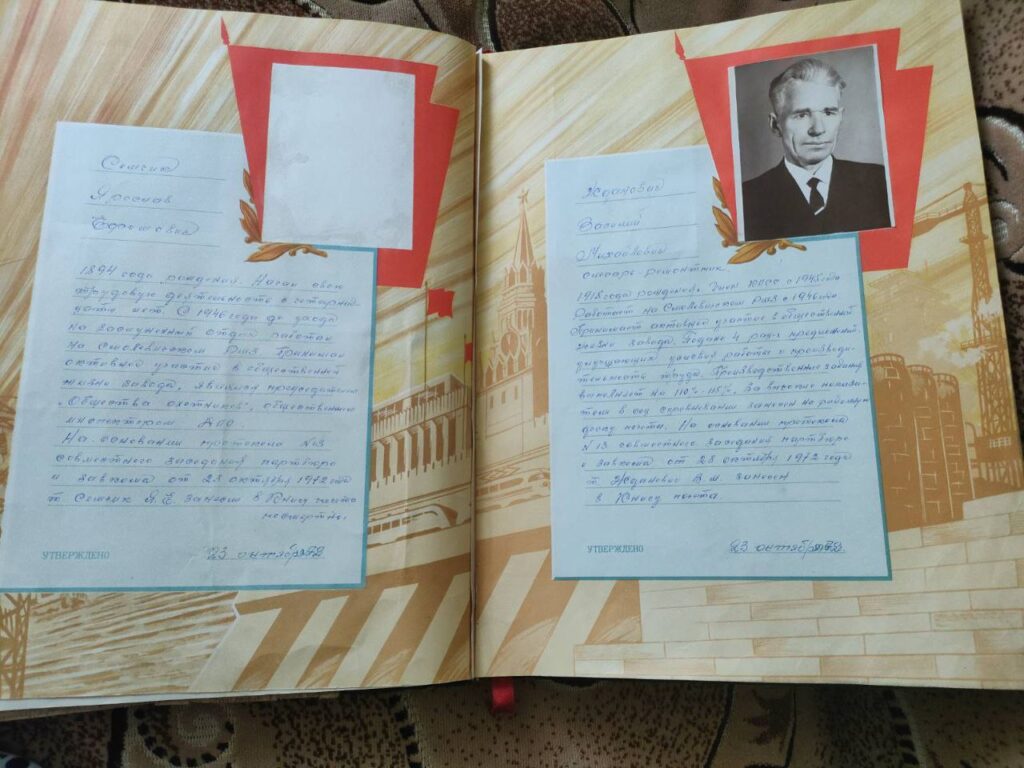 Семник
Ярослав
1894 года рождения. Начал свою
трудовую деятельность с
лет. С 1946 года до ухода
на заслуженный отдых работал
на Смолевичском РМЗ Принимал
активное участие в общественной
жизни завода, являлся председателем
"Общества охотников", общественным
инспектором
На основании протокола №3
совместного заседания партбюро
и завкома от 23 октября 1972 года
т. Семник Я.Е. занесен в Книгу почета
посмертно.
УТВЕРЖДЕНО
23 октября 72
Жданович
Василий
Михайлович
слесарь-ремонтник.
1918 года рождения. Член КПСС с 1948 года
Работает на Смолевичском РМЗ с 1946 года
Принимает активное участие в общественной
жизни завода. Подано 4 рац. предложений
улучшающих условия работы и производи-
тельность труда. Производственные задания
выполняет на 110%-115%. За высокие показа-
тели в соц. соревновании занесен на районную
доску почета. На основании протокола
№13 совместного заседания партбюро
и завкома от 23 октября 1972 года
т. Жданович В.М. занесен
в Книгу почета.
УТВЕРЖДЕНО
23 октября 72